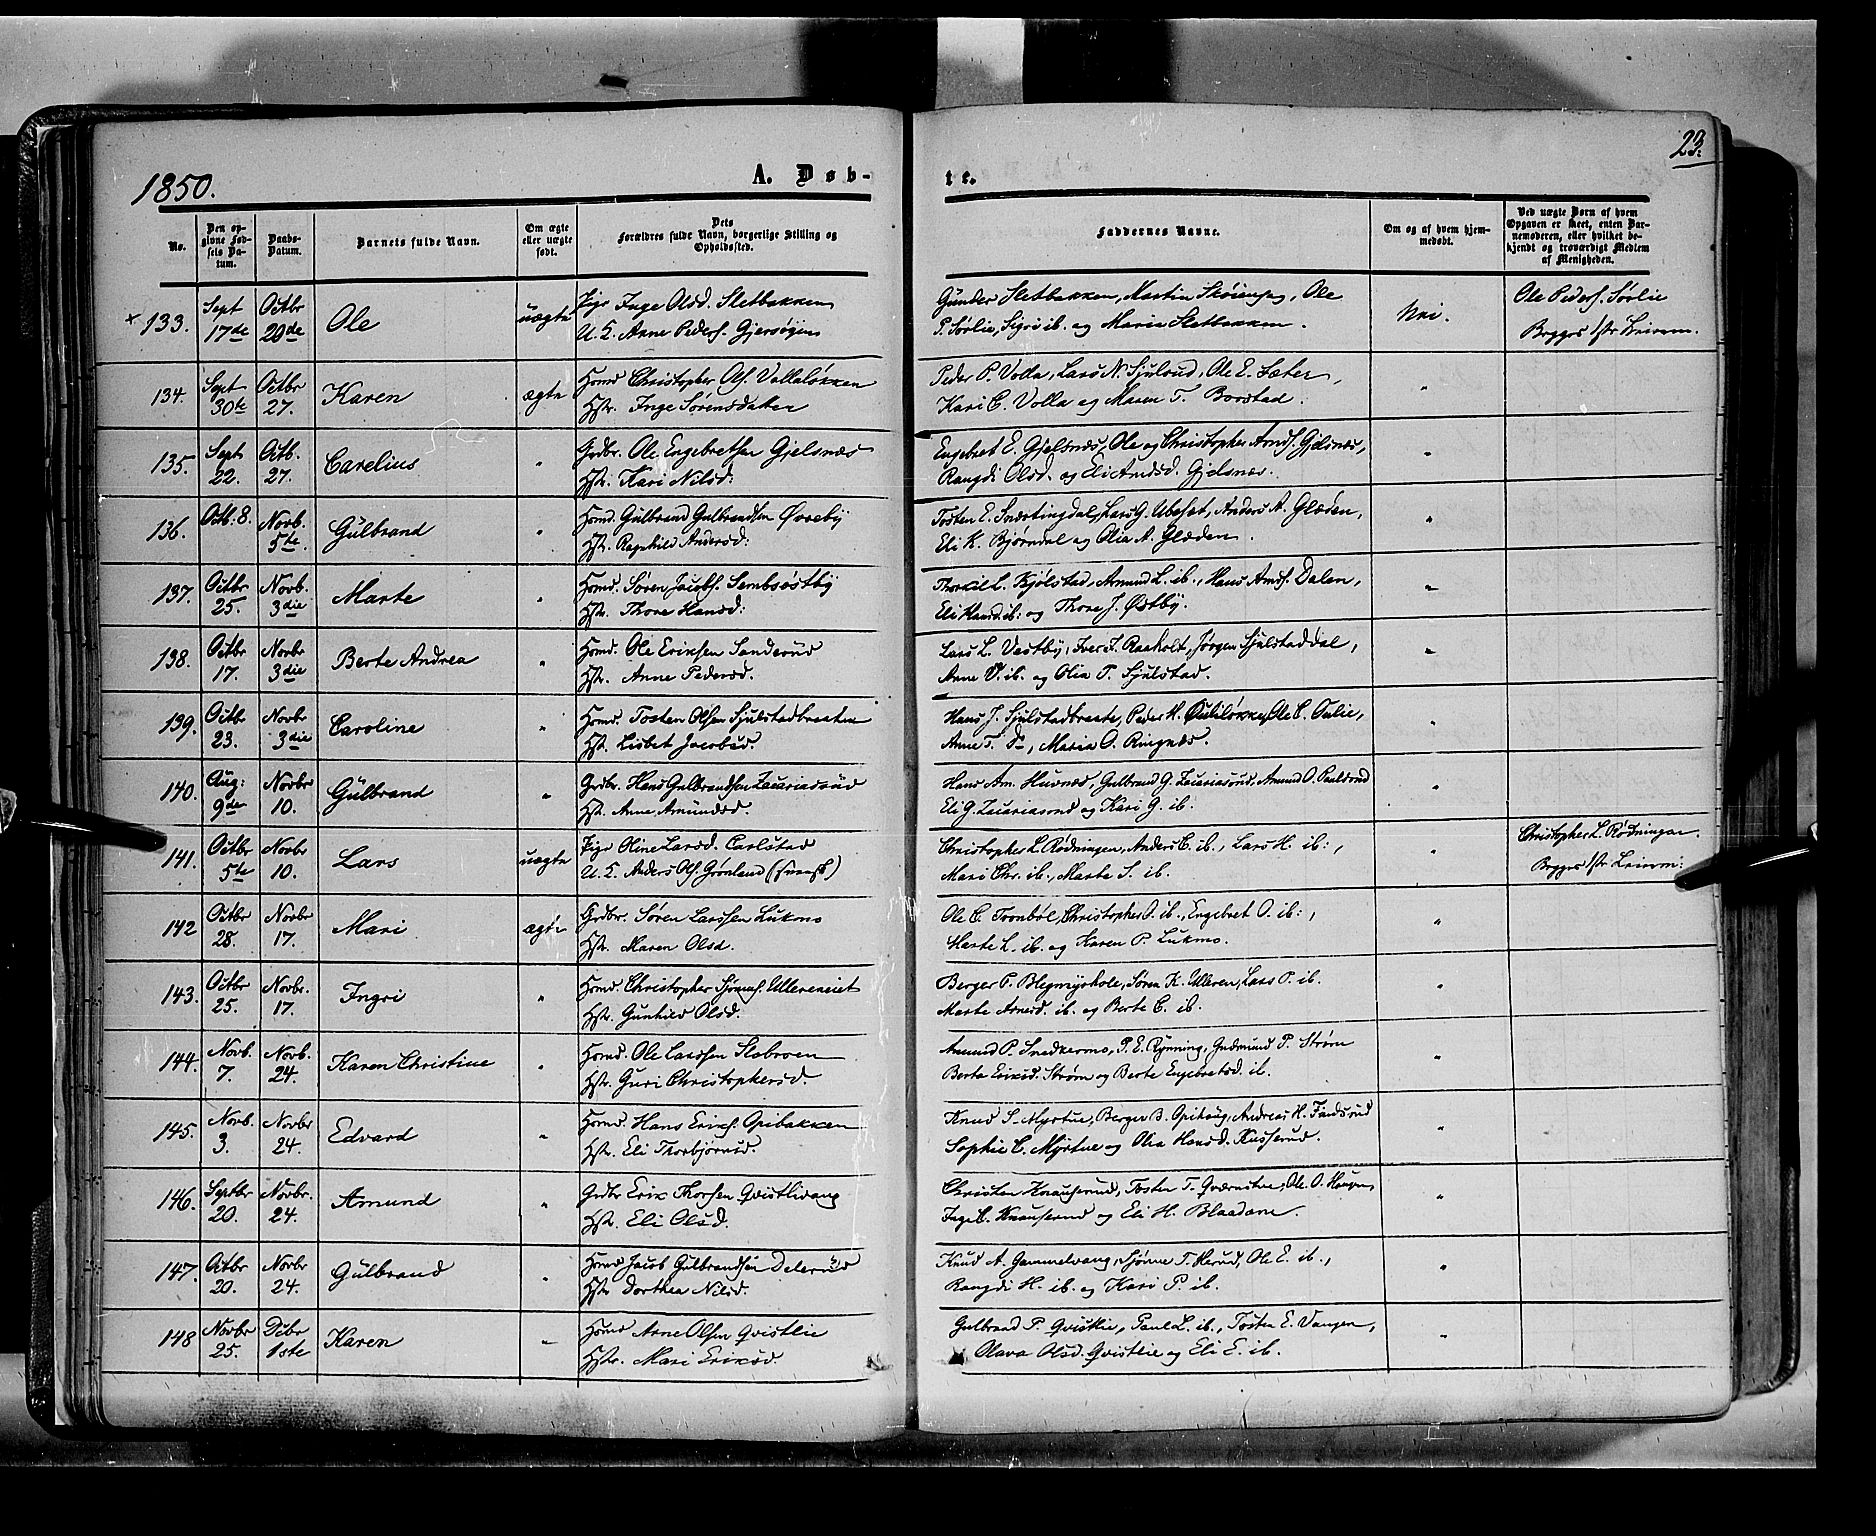 23.
1850.
A. Døb-
te.
No.
Den op-
givne Fød-
sels Da-
tum.
Daabs-
Datum.
Barnets fulde Navn.
Om ægte
eller uægte
født.
Dets
Forældres fulde Navn, borgerlige Stilling og
Opholdssted.
Faddernes Navne.
Om og af hvem hjem-
medøbt.
Ved uægte Børn af hvem
Opgaven er skeet, enten Bar-
nemoderen, eller hvilket be-
kjendt og troværdigt Medlem
af Menigheden.
133. Sept 17de Octbr 20de Ole uægte
Pige Inge Olsd. Sletbakken
U.K. Arne Peders. Gjersøyen
Gunder Sletbakken, Martin, Ole
P. Sørlie, Sigri ib. og Maria Sletbakken.
Nei.
Ole Peders. Sørlie
134. Sept 30te Octbr 27. Karen ægte
Hsmd Christopher Ols. Vollaløkken
Hstr. Inge Sørensdatter
Peder P. Volla, Lars N. Sjulsrud, Ole E. Sæter,
Kari C. Volla og Maren T. Borstad.
"
135. Sept 22. Octb. 27. Carelius "
Grdbr. Ole Engebretsen Gjelsnæs
Hstr. Kari Nilsd:
Engebret E. Gjelsnæs, Ole og Christopher Arnds. Gjelsnæs,
Rangdi Olsd. og Eli Arndsd. Gjelsnæs.
"
136. Octb. 8. Novb. 5te Gulbrand "
Hsmd. Gulbrand Gulbrandsen Øvreby
Hstr. Ragnhild Andersd:
Tosten E. Snertingdal, Lars G. Ubeset, Anders A. Glæden,
Eli K. Bjørndal og Olia A. Glæden.
"
137. Octbr 25. Novb. 3die Marte "
Hsmd. Søren Jacobs. Sembsøstby
Hstr. Thore Hansd:
Thorkil L. Kjølstad, Amund L. ib., Hans Amds. Dalen,
Eli Hansd. ib: og Thore J. Østby.
"
138. Octbr 17. Novbr 3die Berte Andrea "
Hsmd. Ole Eriksen Sanderud
Hstr. Anne Pedersd.
Lars L. Vestby, Iver I. Raaholt, Jørgen Sjulstaddal,
Anne O. ib. og Olia P. Sjulstad.
"
139. Octbr 23. Novbr 3die Caroline "
Hsmd. Tosten Olsen Sjulstadbraaten
Hst. Lisbet Jacobsd.
Hans J. Sjulstadbraate, Peder H. Ouliløkke, Ole C. Oulie,
Anne T. Do, Maria O. Ringnæs.
"
140. Aug: 9de Novbr 10. Gulbrand "
Grdbr. Hans Gulbrandsen Zacariasrud
Hst. Anne Amundsd.
Hans Am. Husnæs, Gulbrand G. Zacariasrud, Amund O. Paulsrud
Eli G. Zacariasrud og Kari G. ib.
"
141. Octbr 5te Novbr 10. Lars uægte
Pige Oline Larsd. Carlstad
U.K. Anders Ols. Grønland (Svensk)
Christopher L. Rødningen, Anders C. ib., Lars H. ib:,
Mari Chr. ib., Marte S. ib.
"
Christopher L. Rødningen.
142 Octbr 28. Novbr 17. Mari ægte
Grdbr. Søren Larssen Lukmo
Hstr. Maren Olsd.
Ole C. Tronbøl, Christopher O. ib., Engebret O. ib:,
Marte L. ib. og Karen P. Lukmo.
"
143. Octbr 25. Novbr. 17. Ingri "
Hsmd. Christopher Sjønns. Ullereneiet
Hstr. Gunhild Olsd.
Berger P. Blegmyrhole, Søren K. Ulleren, Lars P. ib.
Marte Arnesd. ib. og Berte C. ib.
"
144. Novb. 7. Novb. 24. Karen Christine "
Hsmd. Ole Larssen Slobroen
Hstr. Guri Christophersd.
Amund P. Snedkermo, P. E. Rynning, Gudmund P. Strøm
Berte Eriksd. Strøm og Berte Engebretsd. ib.
"
145. Novb. 3. Novbr 24. Edvard "
Hsmd. Hans Eriks. Opibakken
Hstr. Eli Thorbjørnsd.
Knud S. Myrtue, Berger B. Opihaug, Andreas H. Findsrud
Sophie C. Myrtue og Olia Hansd. Kusserud.
"
146. Septbr 20. Novbr. 24. Amund "
Grdbr Erik Thorsen Qvistlivang
Hstr. Eli Olsd.
Christen Knauserud, Tosten T. Qværnstue, Ole O. Haugen,
Inge C. Knauserud og Eli H. Blaadare.
"
147. Octbr 20. Novbr 24. Gulbrand "
Hsmd Jacob Gulbrandsen Delerud
Hstr. Dorthea Nilsd.
Knud A. Gammelvang, Sjønne T. Herud, Ole E. ib.,
Rangdi H. ib. og Kari P. ib.
"
148 Novbr 25. Dcbr 1ste Karen "
Hsmd Arne Olsen Qvistlie
Hstr. Mari Eriksd.
Gulbrand P. Qvistlie, Paul L. ib., Tosten E. Vangen,
Olava Olsd. Qvistlie og Eli E. ib.
"